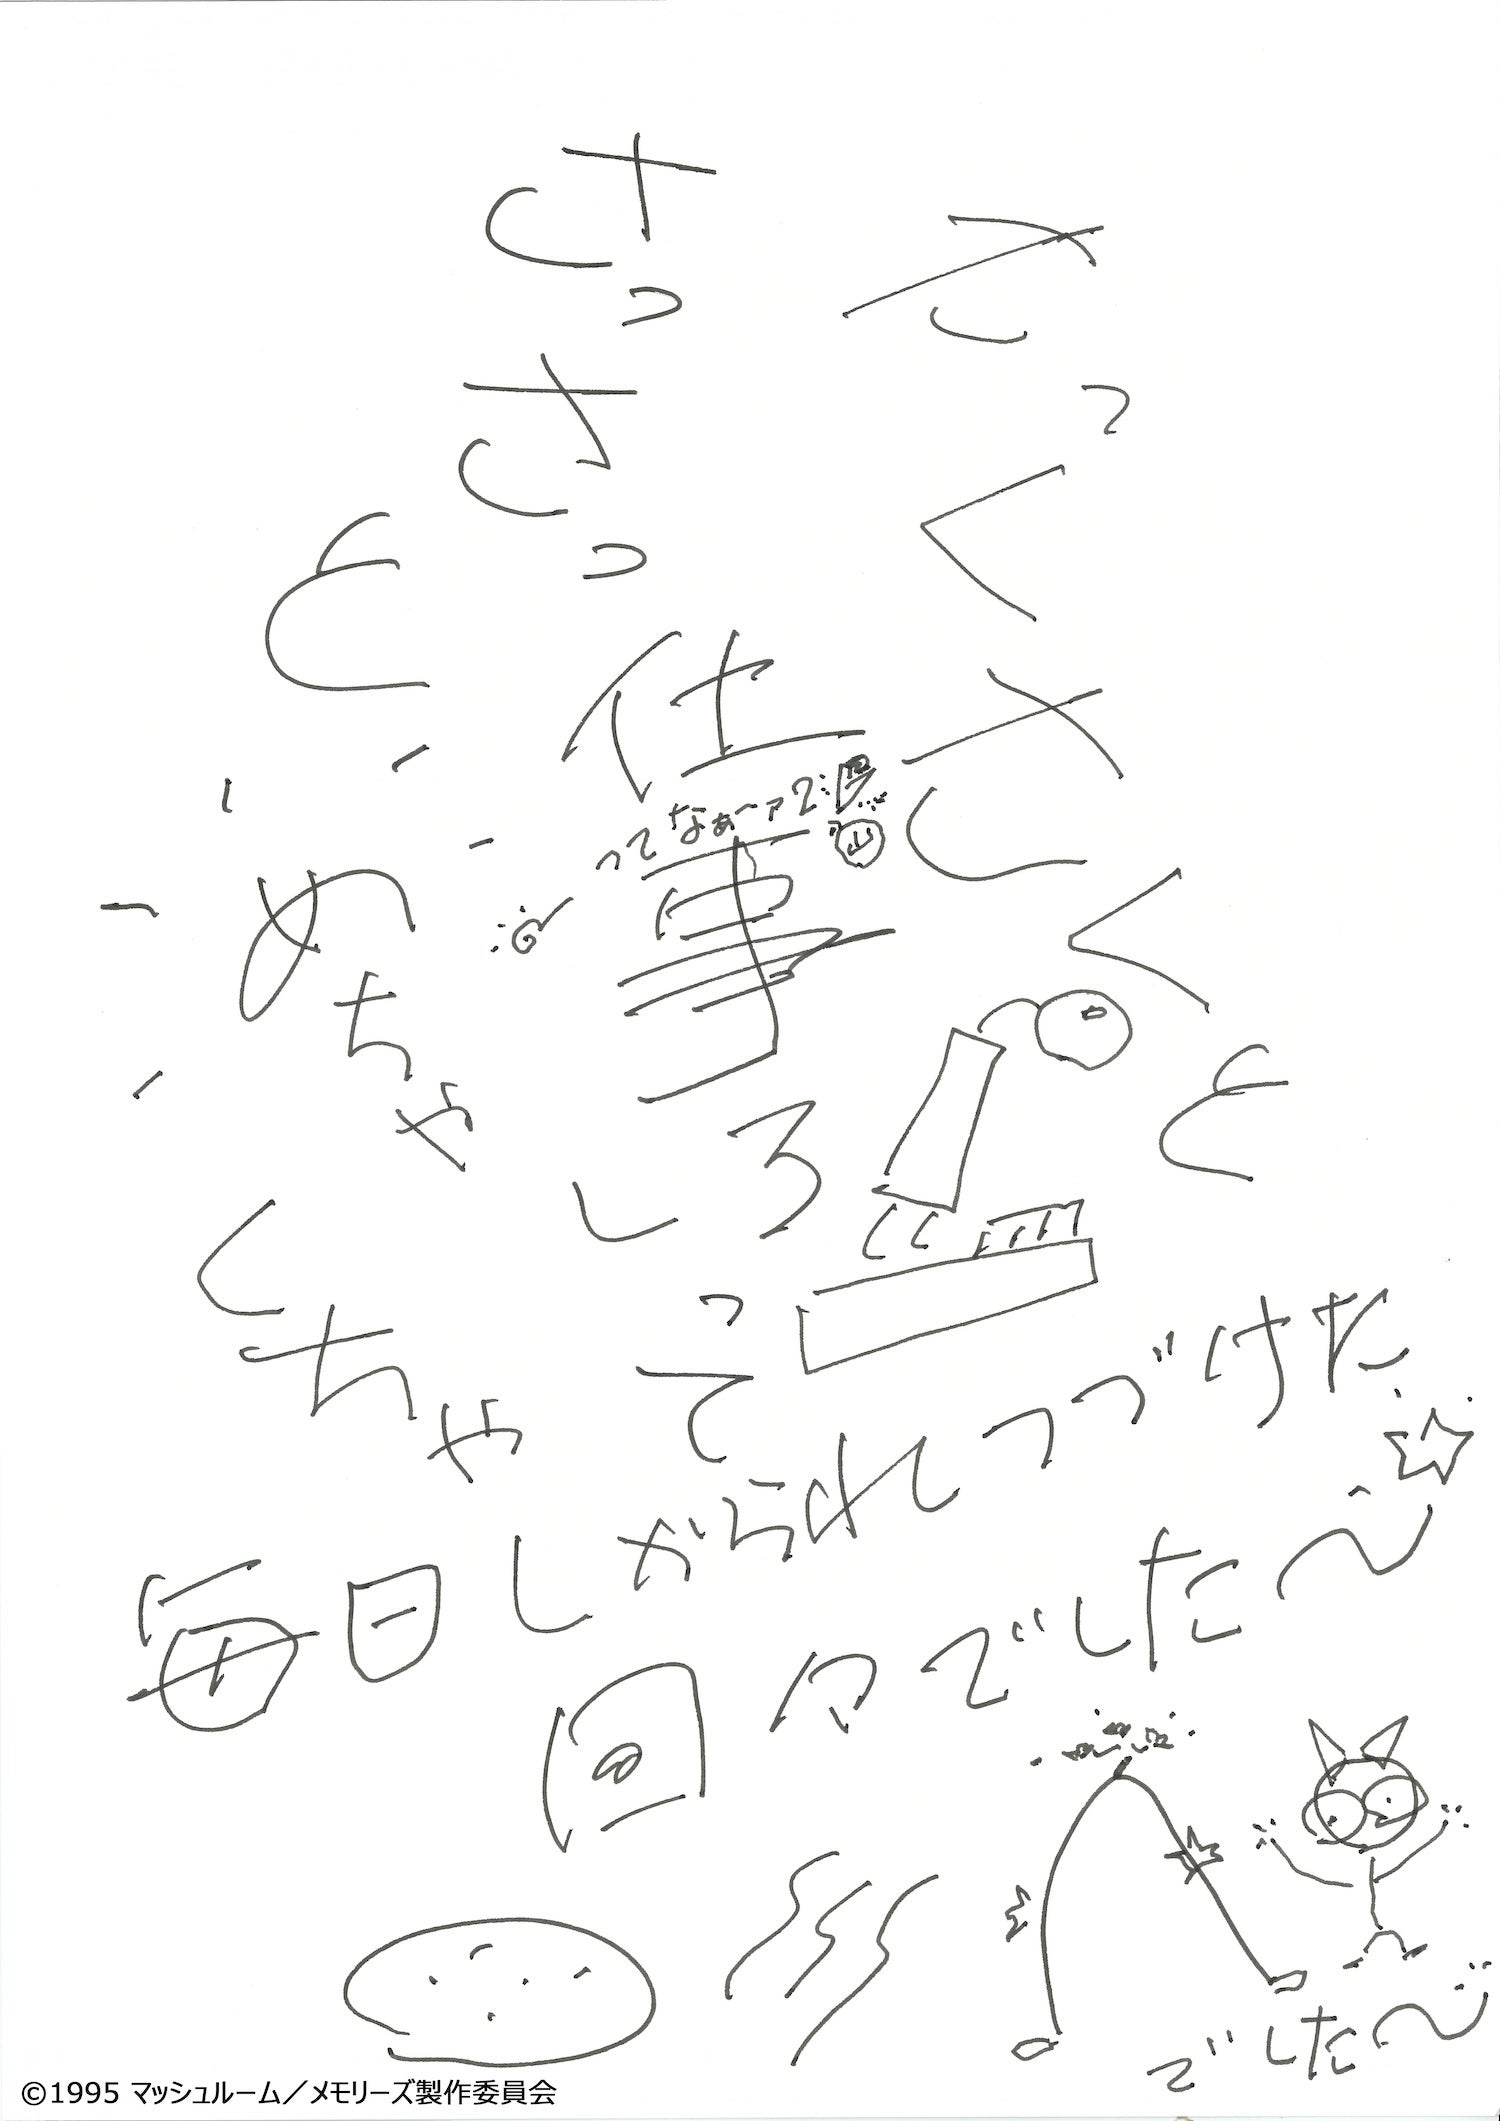 さっくさくと
さっさっ
仕事しろって
ってなぁ~ァて
と
めちゃくちゃ
毎日しかられつづけた☆
日々でした~
でした~
©1995 マッシュルーム／メモリーズ製作委員会